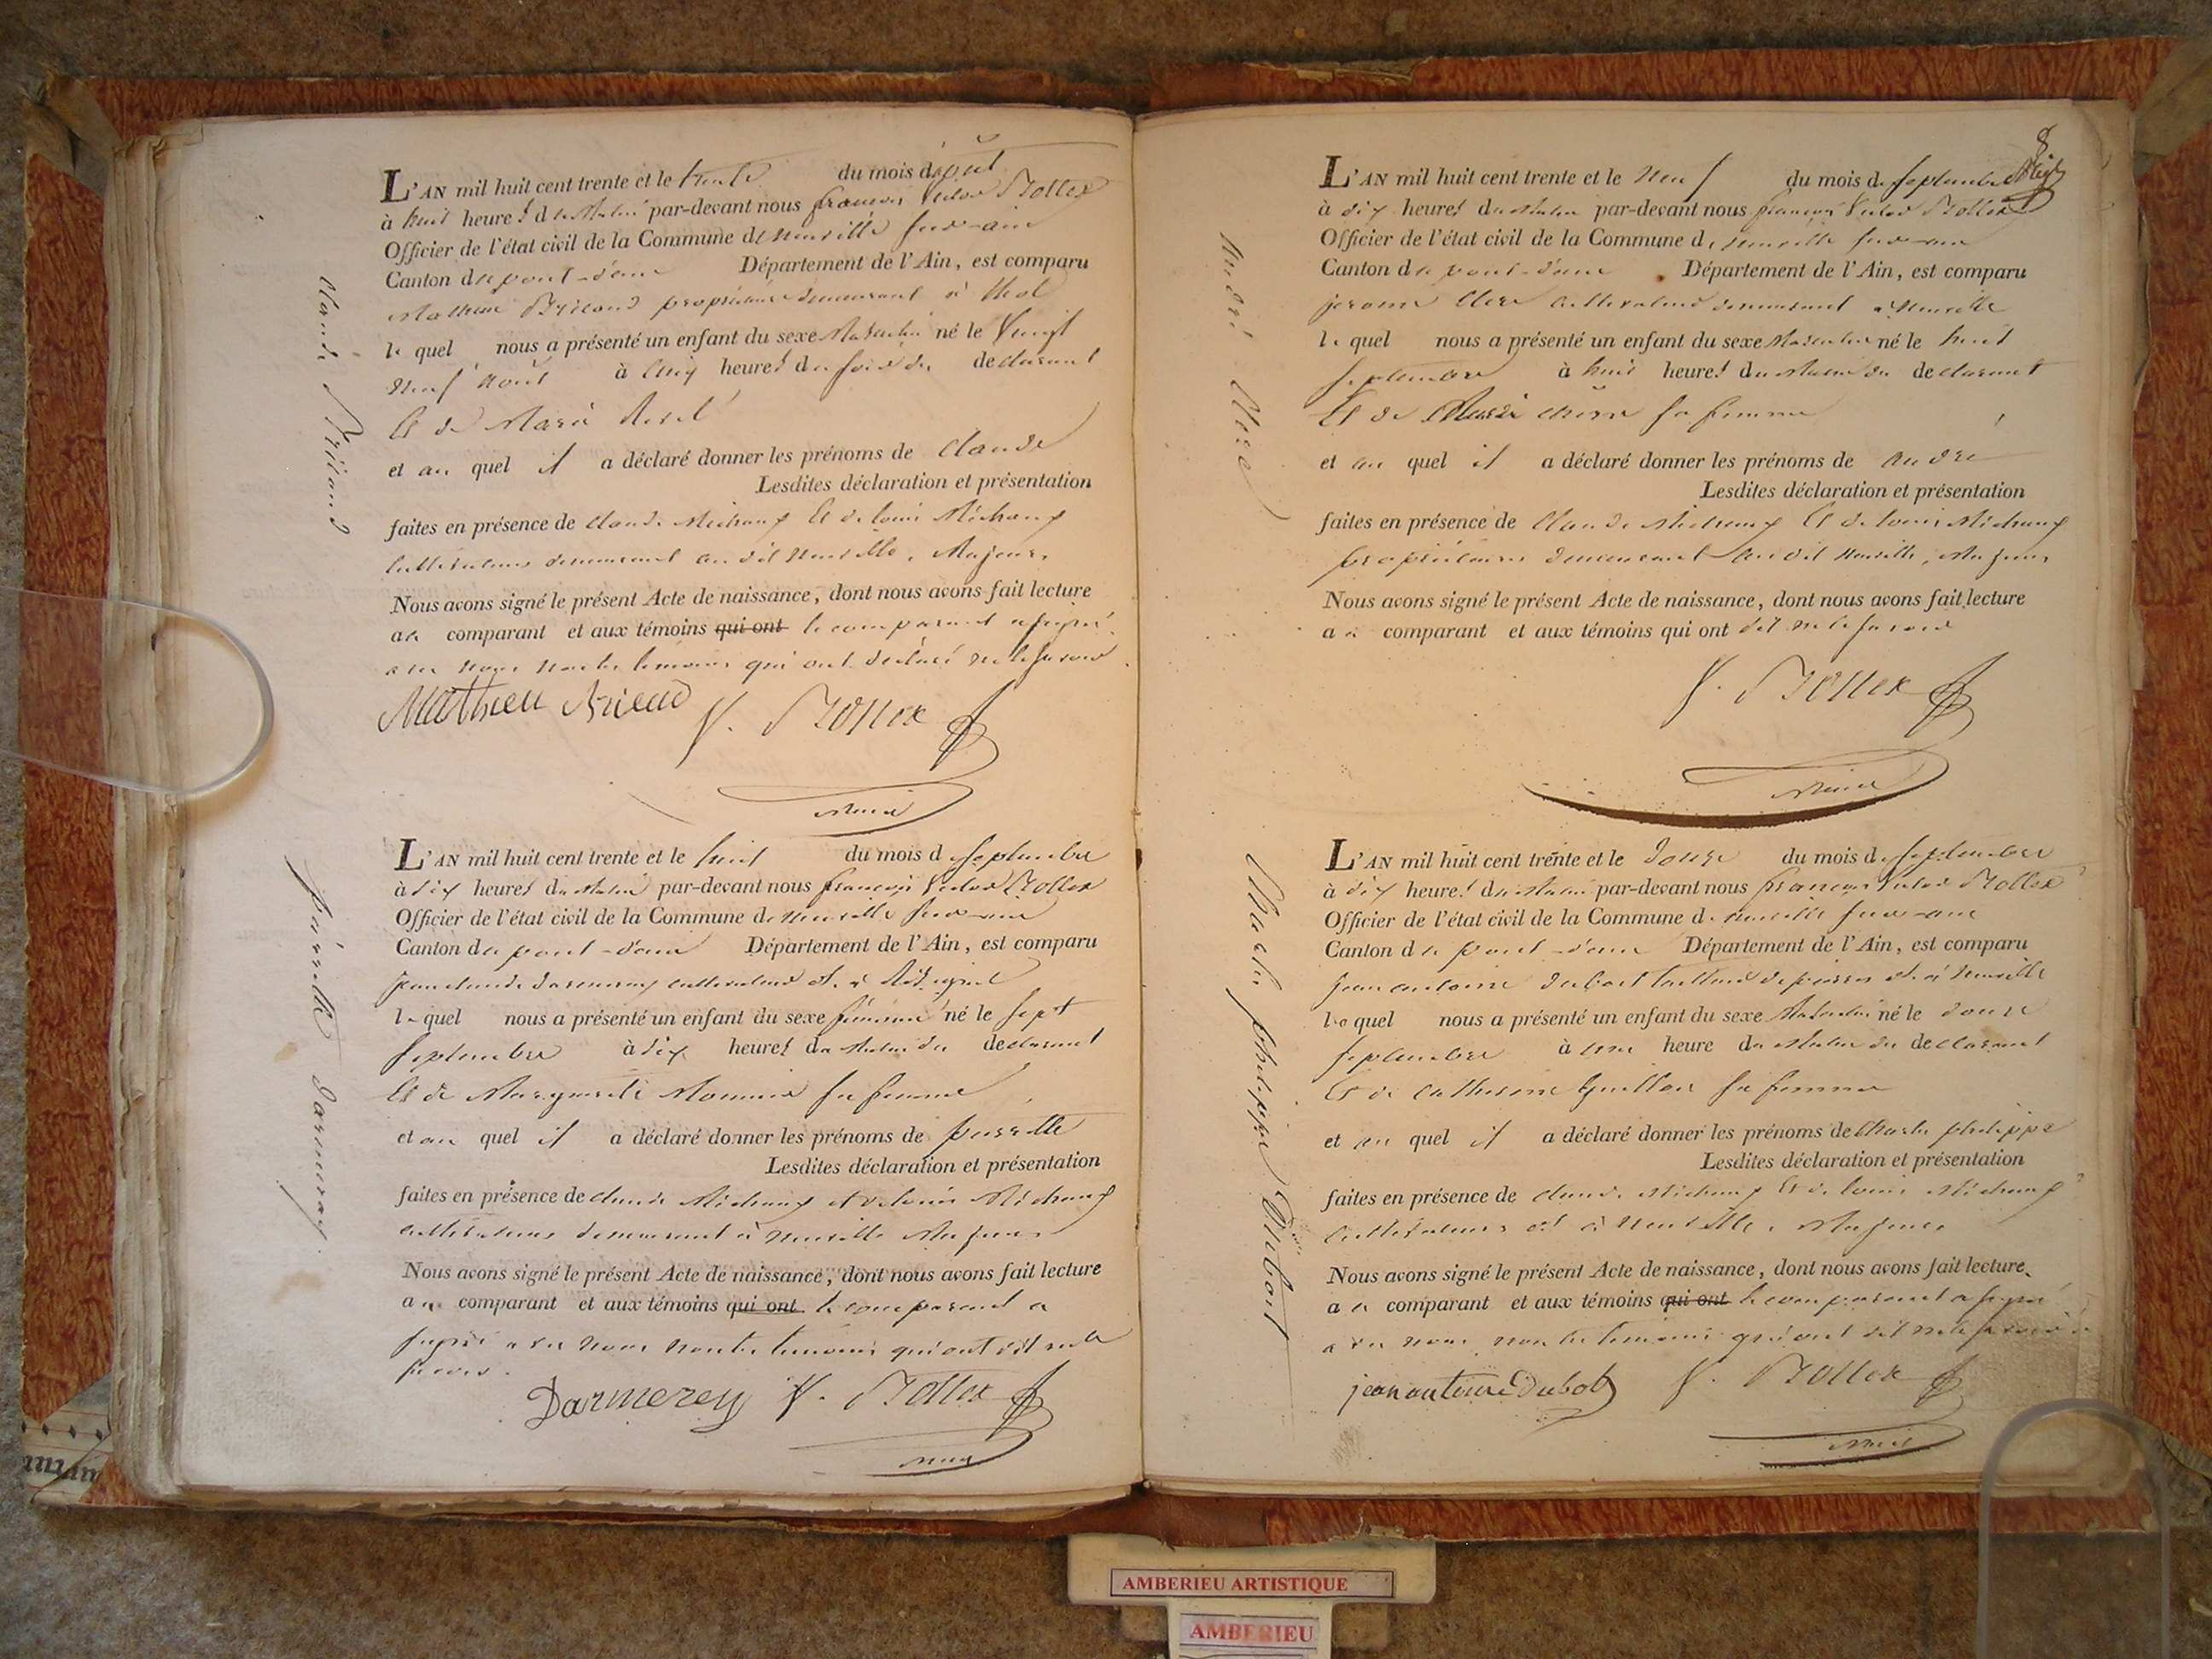 L'AN mil huit cent trente et le trente du mois d'aoüt
à huit heures du Matin par-devant nous françois Victor Bollex
Officier de l'état civil de la Commune de neuville sur-ain
Canton de pont-d'ain Département de l'Ain, est comparu
Mathieu propriétaire demeurant à
le quel nous a présenté un enfant du sexe Masculin né le Vingt
neuf Août à cinq heures du soir du declarant
Et de Marie
et au quel il a déclaré donner les prénoms de Claude
Lesdites déclaration et présentation
faites en présence de Claude Michaux Et de louis Michaux
Cultivateurs demeurant au dit neuville, Majeurs
Nous avons signé le présent Acte de naissance, dont nous avons fait lecture
au comparant et aux témoins qui ont le comparant a signé
avec nous non les temoins qui ont déclaré ne le savoir
Mathieu
V. Bollex
Maire
Claude
L'AN mil huit cent trente et le huit du mois de Septembre
à dix heures du Matin par-devant nous françois Victor Bollex
Officier de l'état civil de la Commune de neuville sur-ain
Canton de pont-d'ain Département de l'Ain, est comparu
jean claude cultivateur dt à
le quel nous a présenté un enfant du sexe féminin né le sept
Septembre à dix heures du Matin du declarant
Et de Marguerite Monnier sa femme
et au quel il a déclaré donner les prénoms de
Lesdites déclaration et présentation
faites en présence de claude Michaux et de louis Michaux
cultivateurs demeurant à neuville Majeurs
Nous avons signé le présent Acte de naissance, dont nous avons fait lecture
au comparant et aux témoins qui ont le comparant a
signé avec nous non les temoins qui ont dit ne le
savoir.
Darmerey V. Bollex
Maire
8
L'AN mil huit cent trente et le neuf du mois de Septembre
à dix heures du Matin par-devant nous françois Victor Bollex
Officier de l'état civil de la Commune de neuville sur-ain
Canton de pont-d'ain Département de l'Ain, est comparu
jerome Clerc cultivateur demeurant à neuville
le quel nous a présenté un enfant du sexe Masculin né le huit
Septembre à huit heures du Matin du declarant
Et de sa femme
et au quel il a déclaré donner les prénoms de andré
Lesdites déclaration et présentation
faites en présence de Claude Michaux Et de louis Michaux
propriétaires demeurant au dit neuville, Majeurs
Nous avons signé le présent Acte de naissance, dont nous avons fait lecture
au comparant et aux témoins qui ont dit ne le savoir
V. Bollex
Maire
André Clerc
L'AN mil huit cent trente et le douze du mois de septembre
à dix heures du Matin par-devant nous françois Victor Bollex
Officier de l'état civil de la Commune de neuville sur-ain
Canton de pont-d'ain Département de l'Ain, est comparu
jean antoine dubost tailleur de pierres dt à neuville
le quel nous a présenté un enfant du sexe Masculin né le douze
septembre à une heure du Matin du declarant
Et de catherine Guillon sa femme
et au quel il a déclaré donner les prénoms de Charles philippe
Lesdites déclaration et présentation
faites en présence de claude Michaux Et de louis Michaux
Cultivateurs dt à neuville, Majeurs
Nous avons signé le présent Acte de naissance, dont nous avons fait lecture
au comparant et aux témoins qui ont le comparant a signé
avec nous non les temoins qui ont dit ne le savoir
jean antoine Dubost V. Bollex
Maire
Charles philippe Dubost
AMBERIEU ARTISTIQUE
AMBERIEU